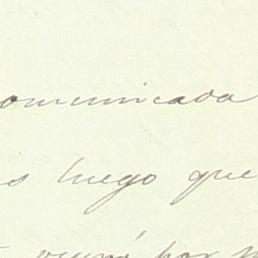 comunicada
s luego que
por